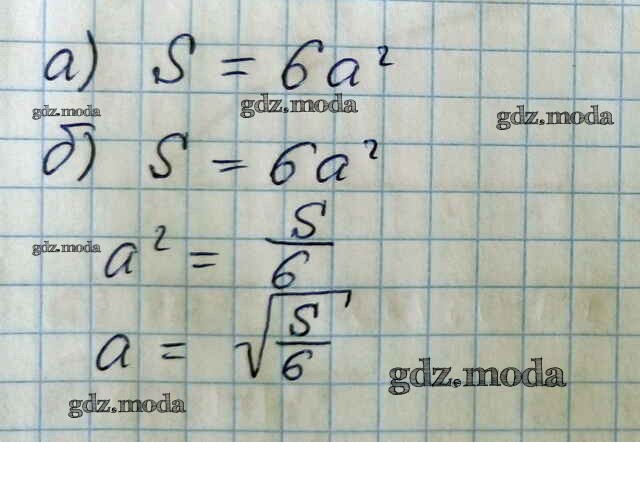 а) S = 6a²
gdz.moda gdz.moda gdz.moda
б) S = 6a²
gdz.moda
a² = S/6
a = √(S/6)
gdz.moda
gdz.moda